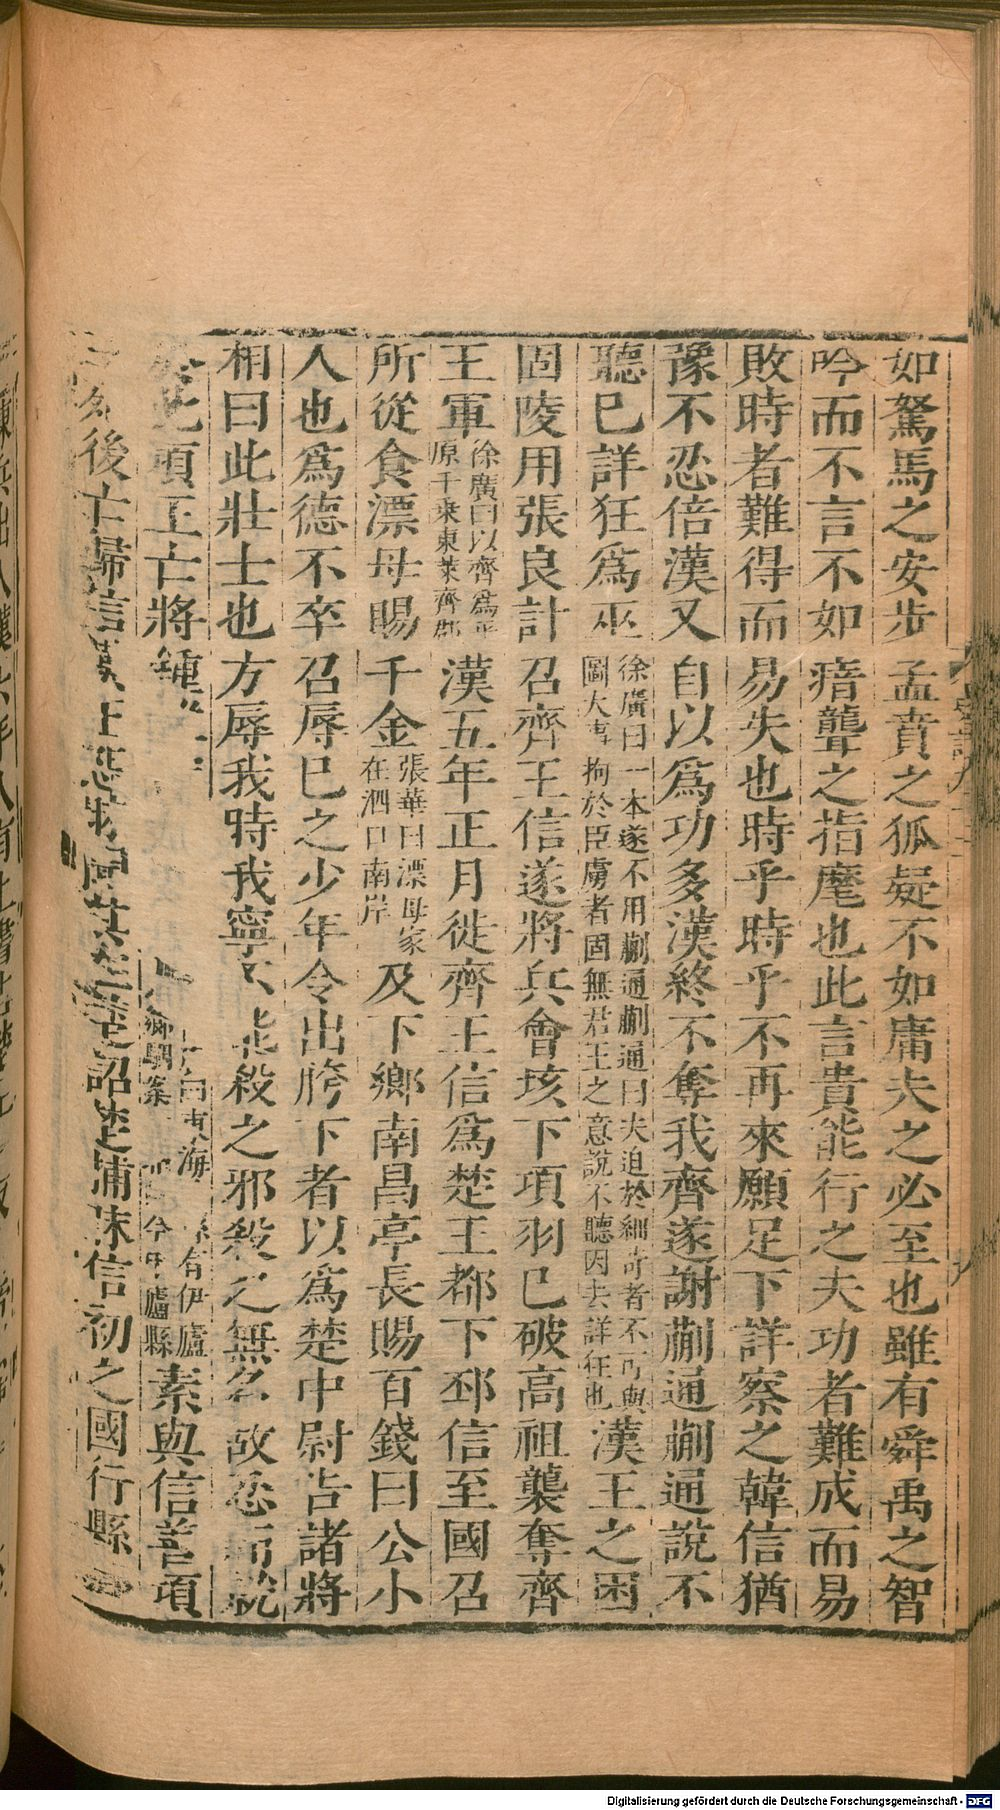 如駑馬之安步孟賁之狐疑不如庸夫之必至也雖有舜禹之智
吟而不言不如瘖聾之指麾也此言貴能行之夫功者難成而易
敗時者難得而易失也時乎時乎不再來願足下詳察之韓信猶
豫不忍倍漢又自以爲功多漢終不奪我齊遂謝蒯通蒯通說不
聽已詳狂爲巫徐廣曰一本遂不用蒯通蒯通曰夫迫於細苛者不可與圖大事拘於臣虜者固無君王之意說不聽因去詳狂也漢王之困
固陵用張良計召齊王信遂將兵會垓下項羽已破高祖襲奪齊
王軍徐廣曰以齊爲平原千乘東萊齊郡漢五年正月徙齊王信爲楚王都下邳信至國召
所從食漂母賜千金張華曰漂母冢在泗口南岸及下鄉南昌亭長賜百錢曰公小
人也爲德不卒召辱已之少年令出胯下者以爲楚中尉告諸將
相曰此壯士也方辱我時我寧不能殺之邪殺之無名故忍而就
項王亡將鍾曰東海有伊廬鄉駰案今中廬縣素與信善項
後亡歸信漢王其在楚詔楚捕昧信初之國行縣
Digitalisierung gefördert durch die Deutsche Forschungsgemeinschaft - DFG